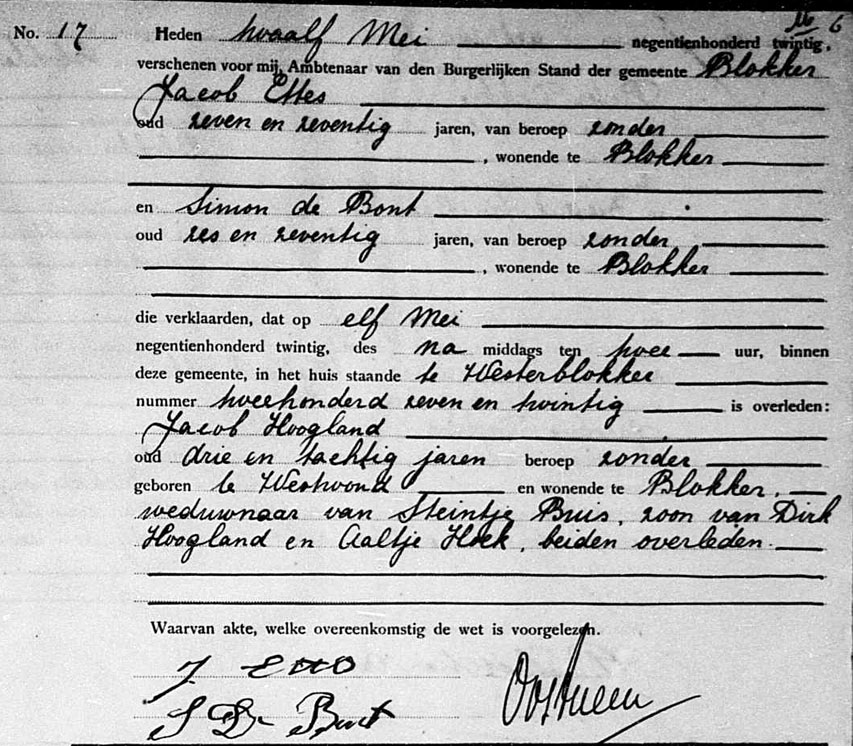 No. 17 Heden twaalf Mei negentienhonderd twintig, 6
verschenen voor mij, Ambtenaar van den Burgerlijken Stand der gemeente Blokker
Jacob Ettes
oud zeven en zeventig jaren, van beroep zonder
, wonende te Blokker
en Simon de Bont
oud zes en zeventig jaren, van beroep zonder
, wonende te Blokker
die verklaarden, dat op elf Mei
negentienhonderd twintig, des na middags ten twee uur, binnen
deze gemeente, in het huis staande te Westerblokker
nummer tweehonderd zeven en twintig is overleden:
Jacob Hoogland
oud drie en tachtig jaren beroep zonder
geboren te Westwoud en wonende te Blokker,
weduwnaar van Steintje Buis, zoon van Dirk
Hoogland en Aaltje Hoek, beiden overleden.
Waarvan akte, welke overeenkomstig de wet is voorgelezen.
J
S D Bont